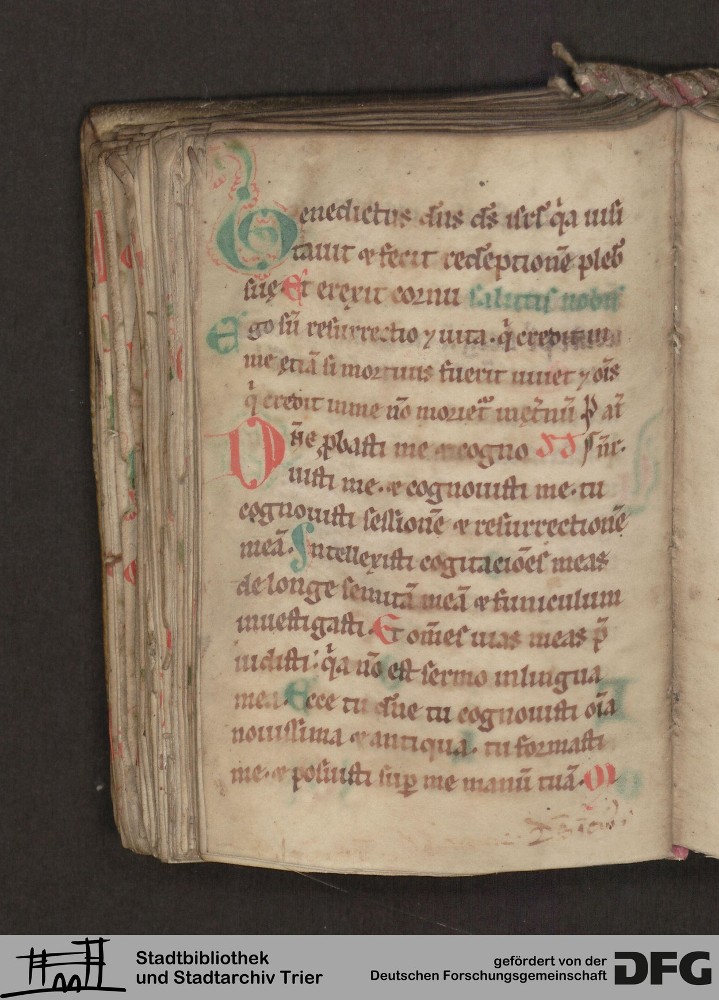 Benedictus dn̄s ds̄ isrl̄ q̇a uisi
tauit ⁊ fecit redēptionē pleb̄
suę Et erexit cornu salutis nobis
Ego sū resurrectio ⁊ uita · q̇ credit in
me etiā si mortuus fuerit uiuet ⁊ oīs
q̇ credit in me nō moriet᷑ inet̄nū
Dn̄e ꝓbasti me ⁊ cogno
uisti me · ⁊ cognouisti me · tu
cognouisti sessionē ⁊ resurrectionē
meā · Intellexisti cogitaciōes meas
de longe semitā meā ⁊ funiculum
inuestigasti · Et om̄es uias meas p̄
uidisti : q̇a nō est sermo inlingua
mea · Ecce tu dn̄e tu cognouisti oīa
nouissima ⁊ antiqua · tu formasti
me · ⁊ posuisti suꝑ me manū tuā · M
Stadtbibliothek
und Stadtarchiv Trier
gefördert von der
Deutschen Forschungsgemeinschaft
DFG